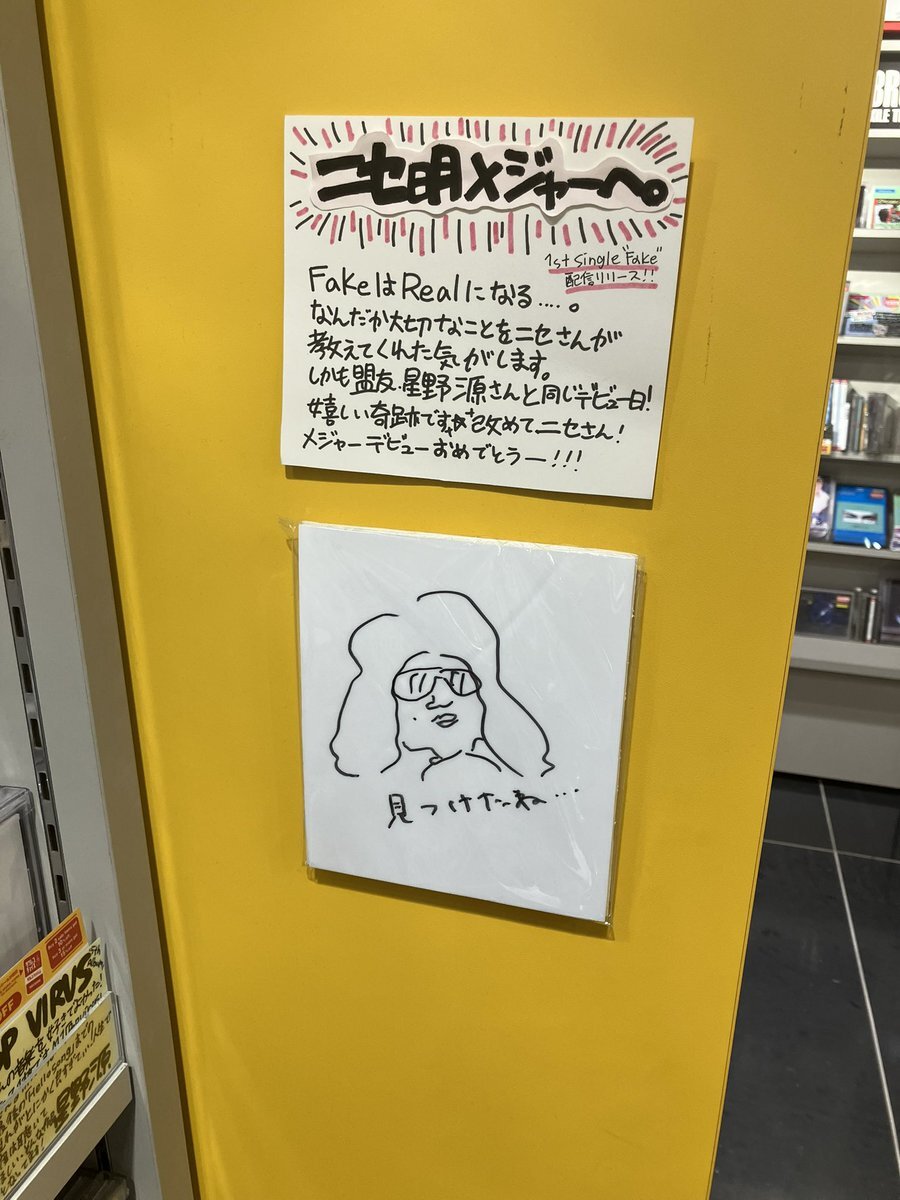 ニセ明メジャーへ。
1st Single "Fake"
配信リリース!!
FakeはRealになる....。
なんだか大切なことをニセさんが
教えてくれた気がします。
しかも盟友、星野源さんと同じデビュー日!
嬉しい奇跡ですが改めてニセさん!
メジャーデビューおめでとうー!!!
見つけたね…
OFF
OP VIRUS
星野源